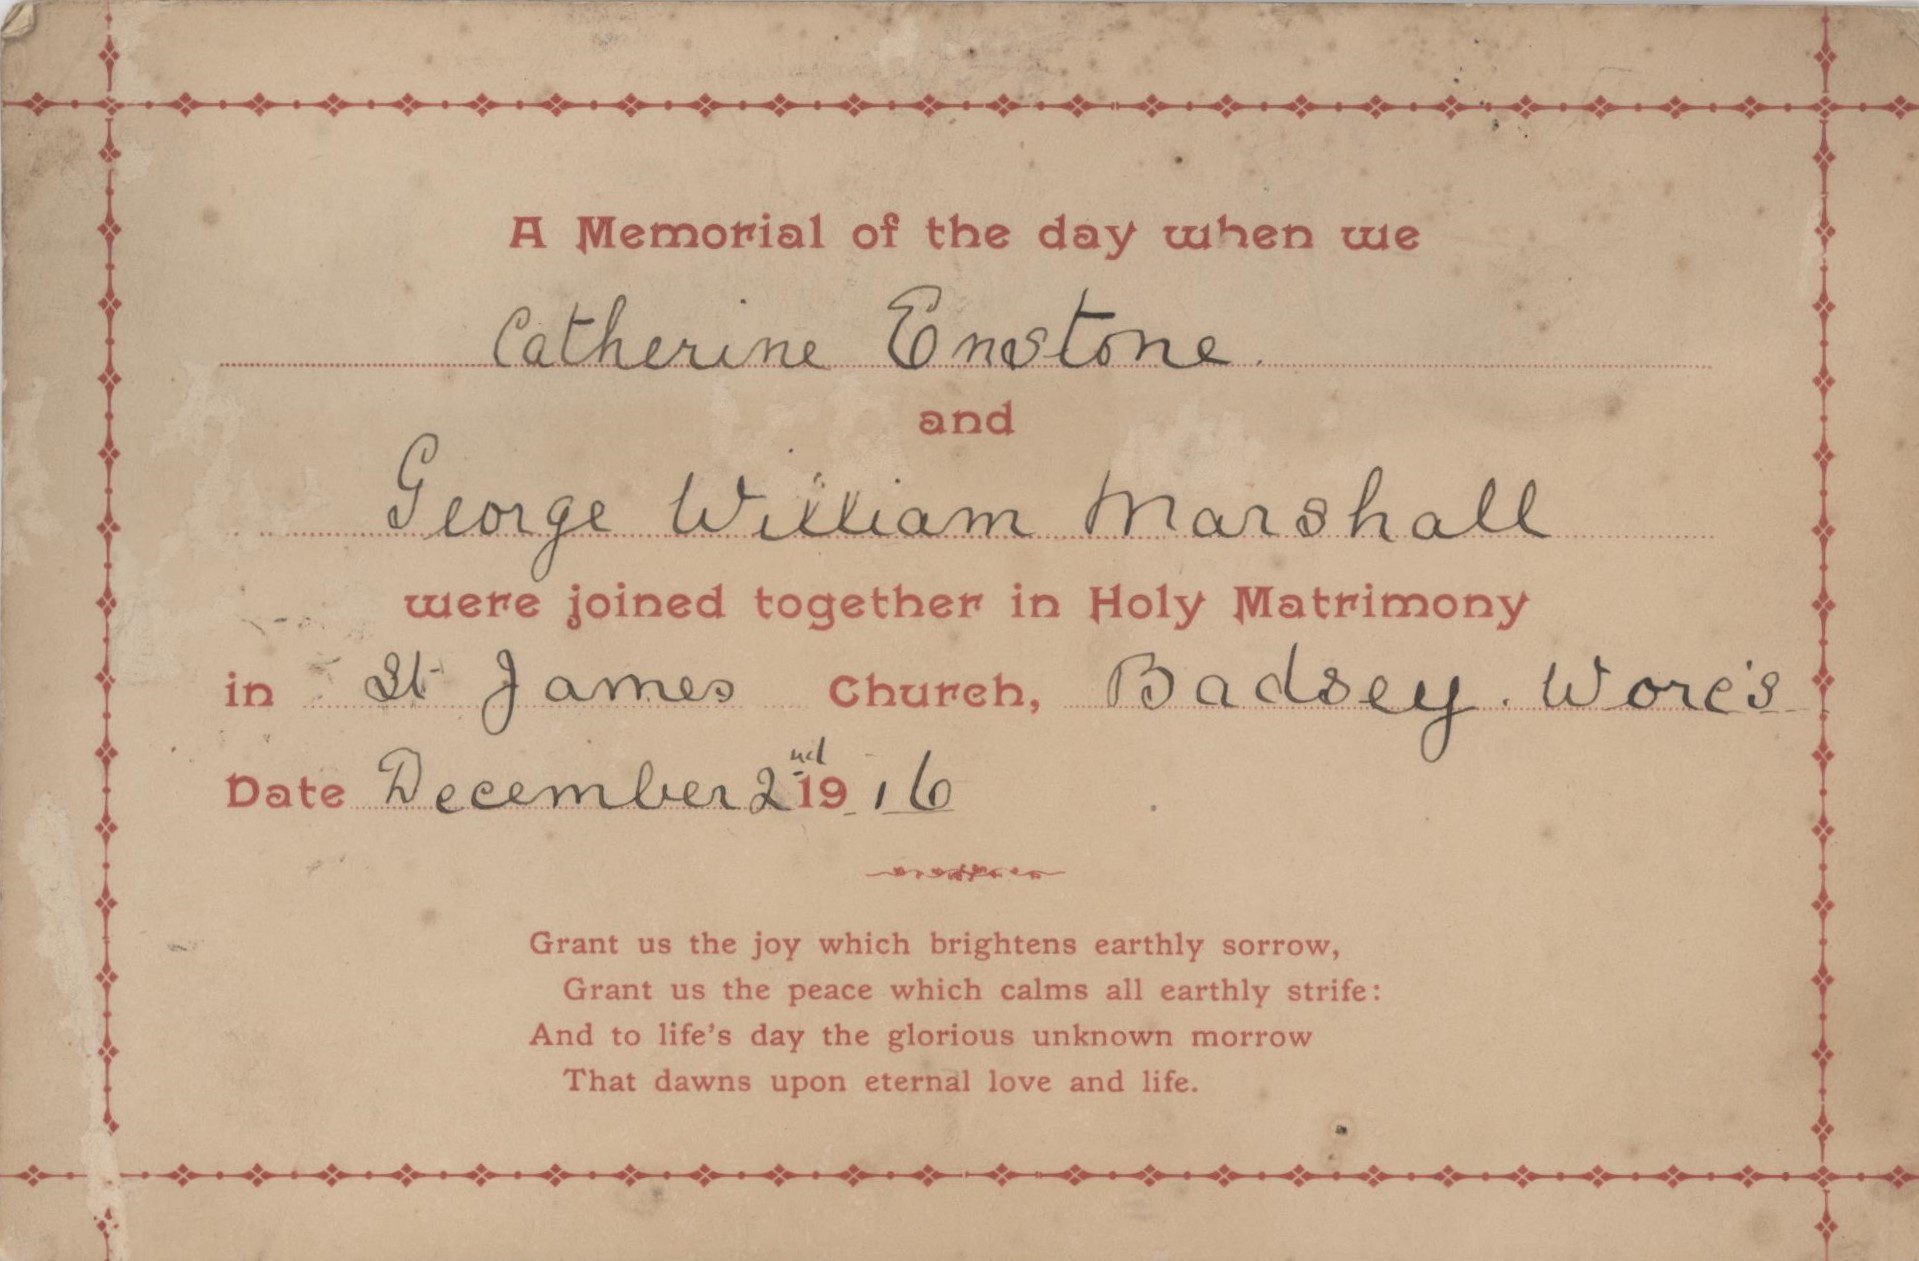 A Memorial of the day when we
Catherine Enstone.
and
George William Marshall
were joined together in Holy Matrimony
in St James Church, Badsey. Worc's
Date December 2nd 1916
Grant us the joy which brightens earthly sorrow,
Grant us the peace which calms all earthly strife:
And to life's day the glorious unknown morrow
That dawns upon eternal love and life.